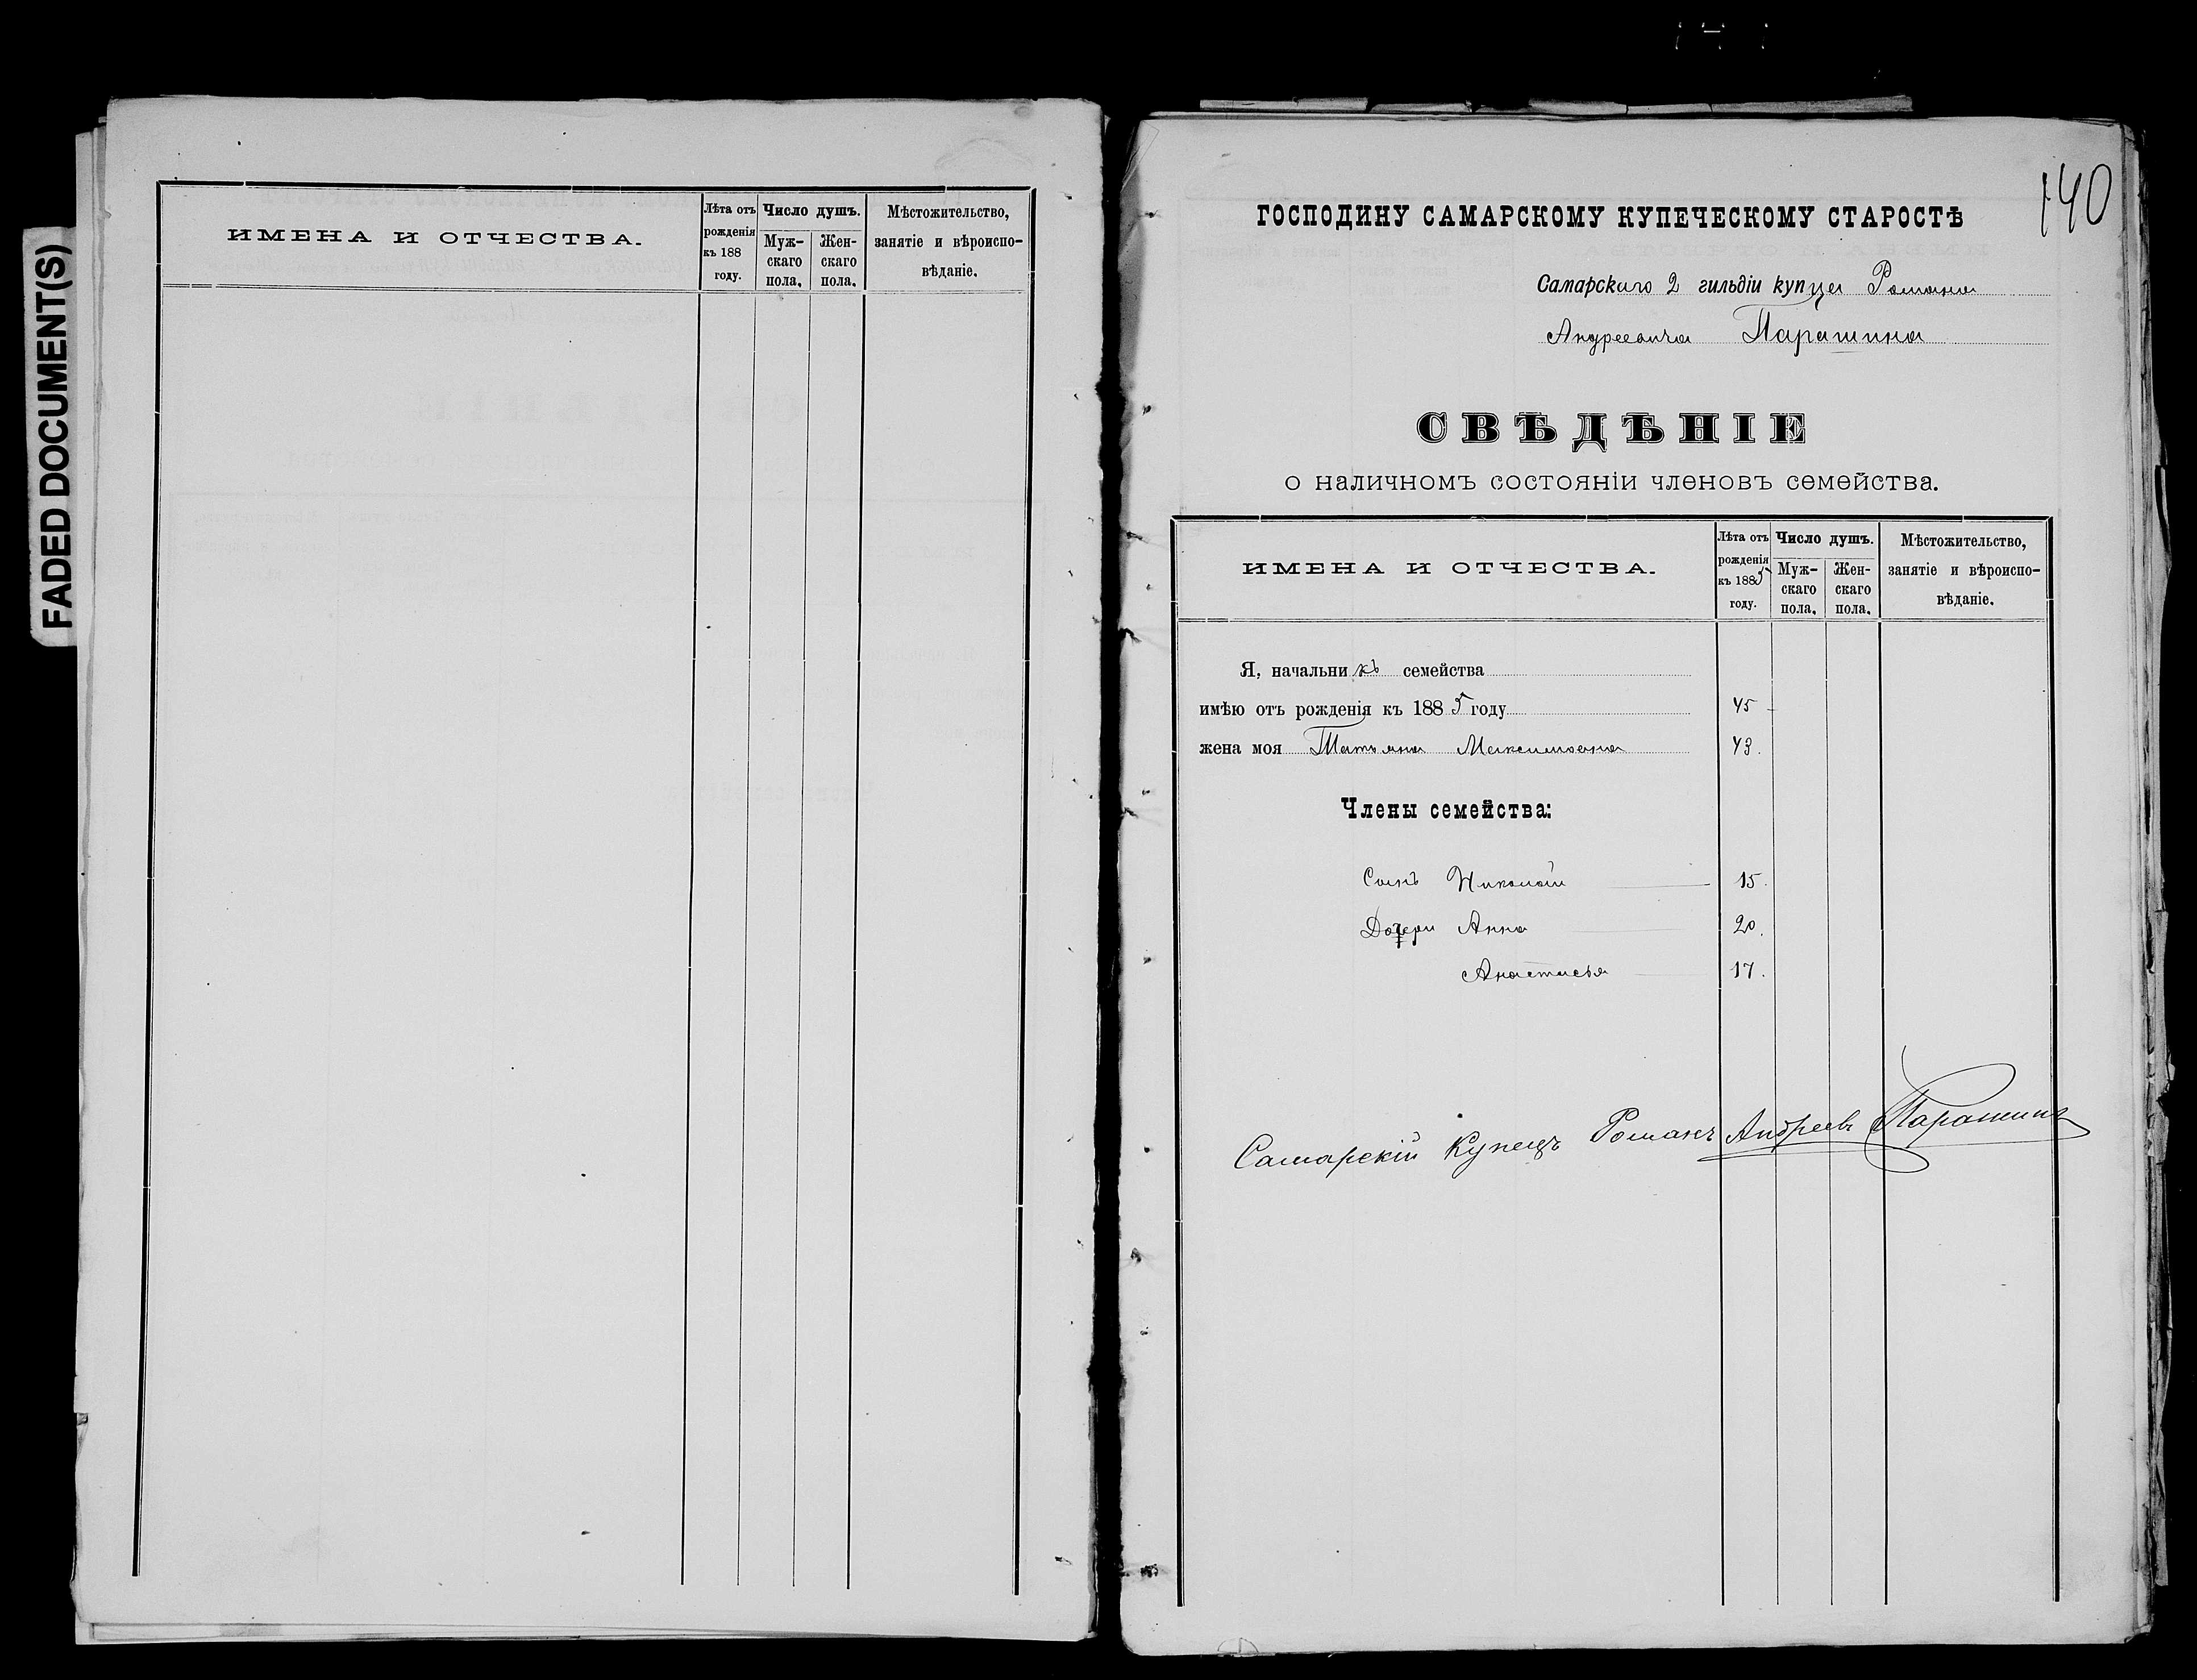 FADED DOCUMENT(S)
ИМЕНА И ОТЧЕСТВА.
Лѣта отъ рожденія къ 188 году.
Число душъ.
Мужскаго пола.
Женскаго пола.
Мѣстожительство, занятіе и вѣроисповѣданіе.
140
ГОСПОДИНУ САМАРСКОМУ КУПЕЧЕСКОМУ СТАРОСТѢ
Самарскаго 2 гильдіи купца Романа
Андреевича Парашина
СВѢДѢНІЕ
о наличномъ состояніи членовъ семейства.
ИМЕНА И ОТЧЕСТВА.
Лѣта отъ рожденія къ 1885 году.
Число душъ.
Мужскаго пола.
Женскаго пола.
Мѣстожительство, занятіе и вѣроисповѣданіе.
Я, начальникъ семейства
имѣю отъ рожденія къ 1885 году 45
жена моя Татьяна Максимовна 43.
Члены семейства:
Сынъ Николай 15.
Дочери Анна 20.
Анастасья 17.
Самарскій Купецъ Романъ Андреевъ Парашинъ